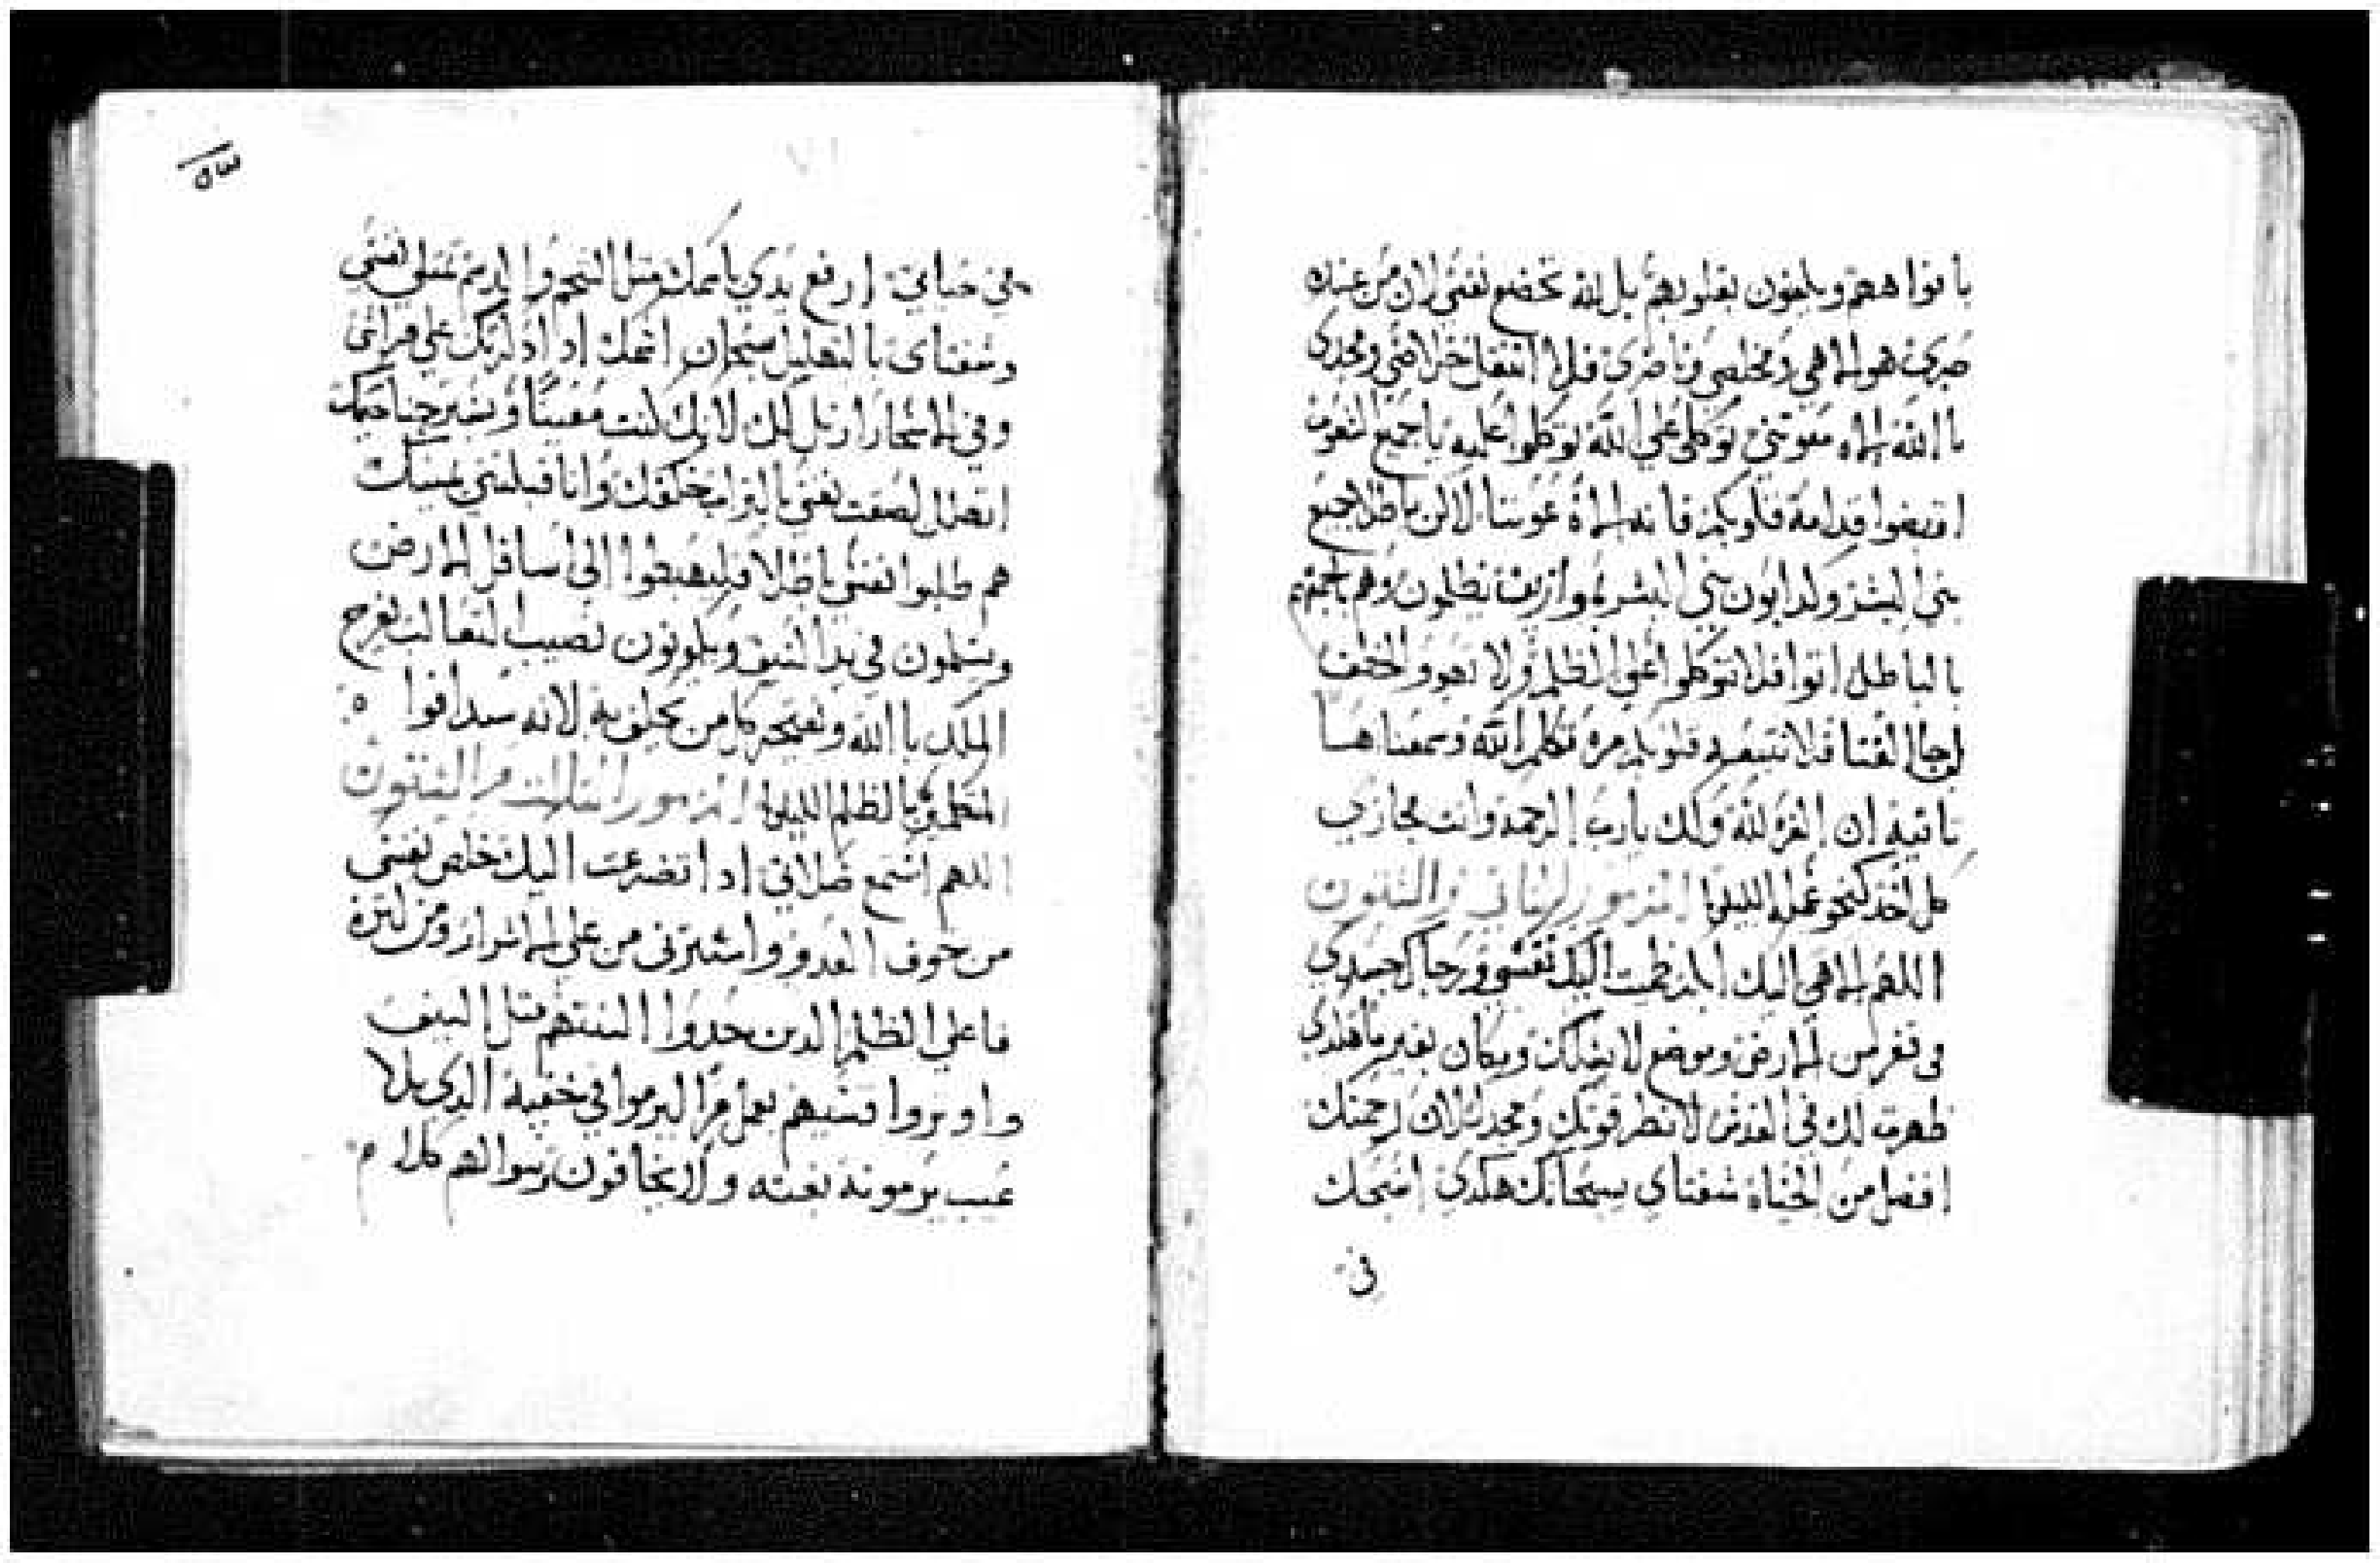 بافواههم ويلعنون بقلوبهم بل لله تخضع نفسى لان من عنده
صبرى هو الاهي ومخلصي وناصرى فلا انتقل خلاصي ومجدى
با الله الاه معونتي توكلي على الله توكلوا عليه يا جميع الشعوب
قدامه قلوبكم فانه الاه عوننا لاكن باطلا جميع
بنى البشر ولدابون بنى البشر موازين يظلمون وهم
بالباطل اتوا فلا تتوكلوا على الظلم ولا تهووا الخطف
اجا الغنا فلا قلوبكم مرة تكلم الله وسمعنا ها
تانية ان العز لله ولك يارب الرحمة وانت تجازى
كل احد كنحو عمله الليلويا المزمور الثانى والستون
اللهم الاهي اليك ابتكر ظميت اليك نفسي جسدى
فى قفر من الارض وموضع لا يسلك ومكان بغير ما هكدى
ظهرت لك فى القدس لانظر قوتك ومجدك لان رحمتك
افضل من الحياه شفتاى يسبحانك هكدى اسبحك
فى
٥٣
في حياتى ارفع يدي باسمك مثل الشحم والدسم تمتلي نفسي
وشفتاى بالتهليل يسبحان اسمك اد ادكرتك على فراشى
وفى الاسحار ارتل لك لانك كنت معينا وبستر جناحيك
اتظلل لصقت نفسي بالتراب خلفك وانا قبلتنى يمينك
هم طلبوا نفسى باطلا فليهبطوا الى اسافل الارض
ويسلمون فى يد السيف ويكونون نصيبا للثعالب يفرح
الملك با الله ويفتخر كل من يحلف به لانه سد افوا ه
المتكلمين بالظلم الليلويا المزمور الثالث والستون
اللهم استمع صلاتي ادا تضرعت اليك خلص نفسى
من خوف العدو واسترنى من الاشرار ومن كترة
فاعلي الظلم الدين حدوا السنتهم مثل السيف
واوتروا قسيهم بعمل مر اليرموا في خفية الدى بلا
عيب يرمونه بغتة ولا يخافون رسوا لهم كلا م